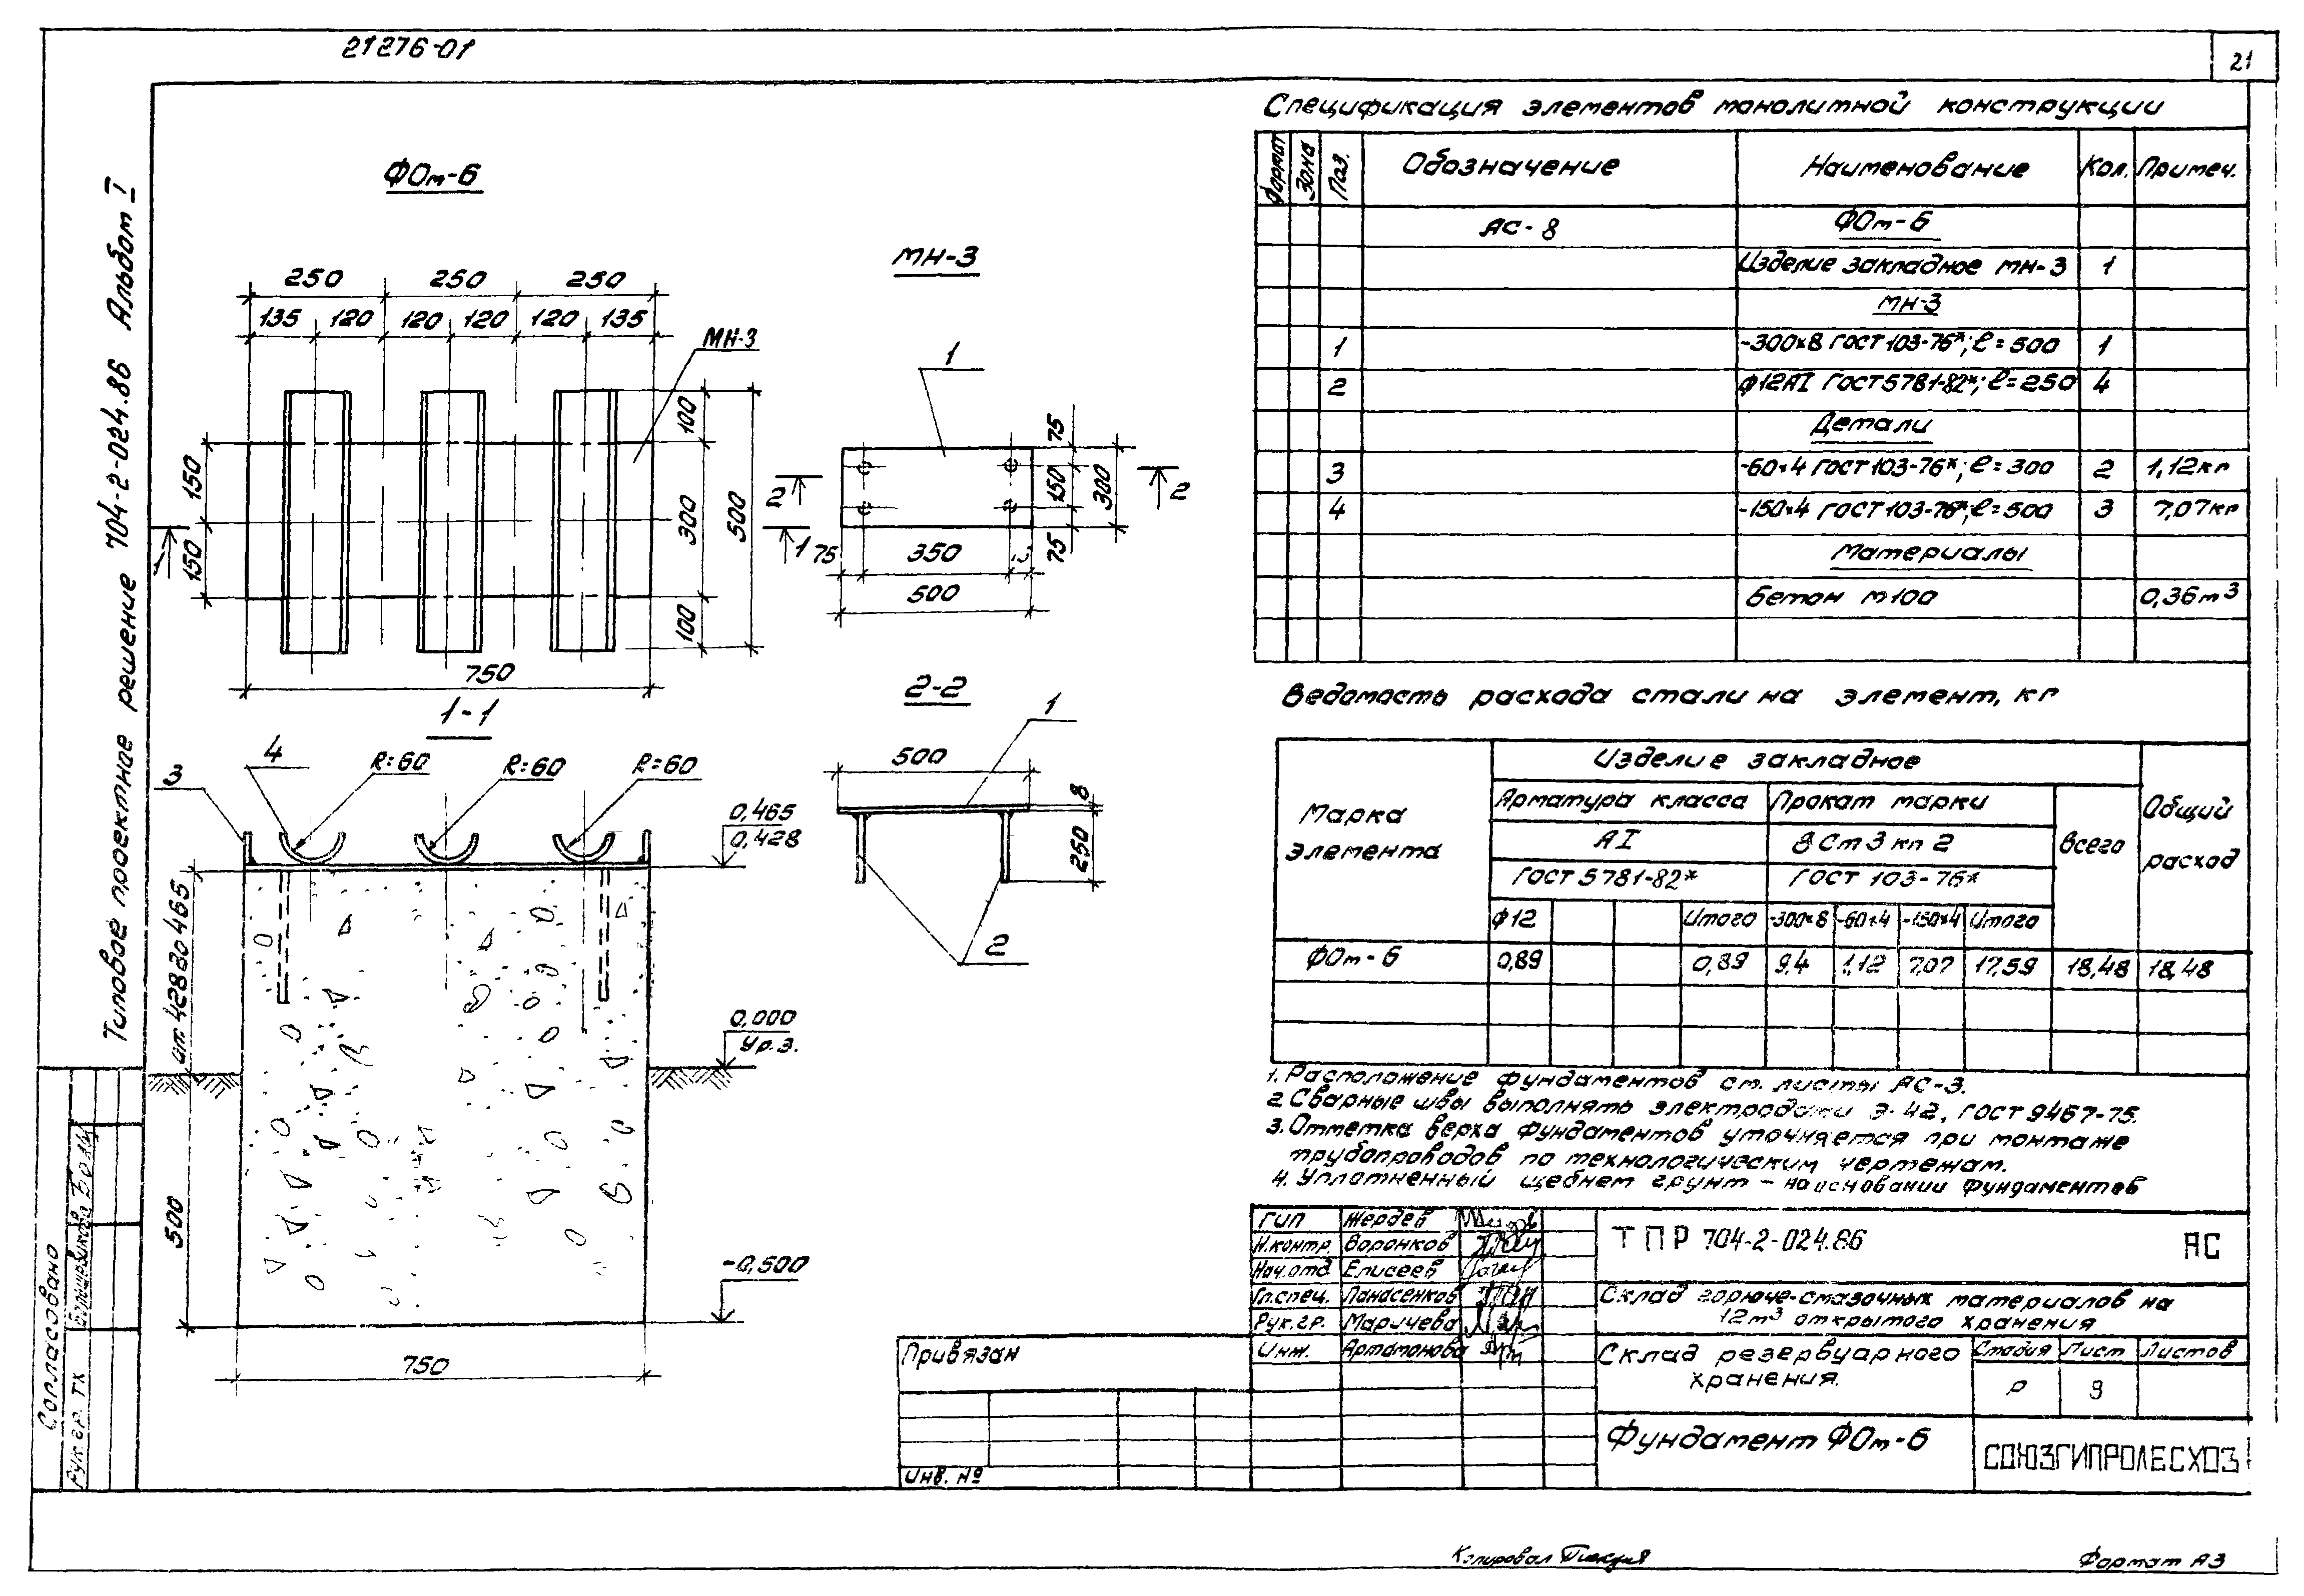 21276-01
21
Типовое проектное решение 704-2-024.86 Альбом I
ФОм-6
250 250 250
135 120 120 120 120 135
МН-3
150
150
100
300
100
500
1
750
МН-3
1
2 2
1
75
150
75
300
75 350
500
1-1
3
4
R=60 R=60 R=60
0,465
0,428
от 428 до 465
0,000
Ур.з.
500
-0,500
750
2-2
1
500
8
250
2
Спецификация элементов монолитной конструкции
Формат Зона Поз. Обозначение Наименование Кол. Примеч.
АС-8 ФОм-6
Изделие закладное МН-3 1
МН-3
1 -300×8 ГОСТ 103-76*; ℓ=500 1
2 ф12АI ГОСТ 5781-82*; ℓ=250 4
Детали
3 -60×4 ГОСТ 103-76*; ℓ=300 2 1,12кг
4 -150×4 ГОСТ 103-76*; ℓ=500 3 7,07кг
Материалы
Бетон М100 0,36м³
Ведомость расхода стали на элемент, кг
Марка элемента
Изделие закладное
Общий расход
Арматура класса Прокат марки
Всего
АI ВСт3кп2
ГОСТ 5781-82* ГОСТ 103-76*
ф12 Итого -300×8 -60×4 -150×4 Итого
ФОм-6 0,89 0,89 9,4 1,12 7,07 17,59 18,48 18,48
1. Расположение фундаментов см. листы АС-3.
2. Сварные швы выполнять электродами Э-42, ГОСТ 9467-75.
3. Отметка верха фундаментов уточняется при монтаже
трубопроводов по технологическим чертежам.
4. Уплотненный щебнем грунт – на основании фундаментов
ГИП Жердев
Н.контр. Воронков
Нач.отд. Елисеев
Гл.спец. Панасенков
Рук.гр. Маричева
Инж. Артамонова
ТПР 704-2-024.86 АС
Склад горюче-смазочных материалов на
12м³ открытого хранения
Склад резервуарного
хранения.
Стадия Лист Листов
Р 9
Фундамент ФОм-6
СОЮЗГИПРОЛЕСХОЗ
Привязан
Инв. №
Согласовано
Рук.гр. ТХ
Копировал
Формат А3